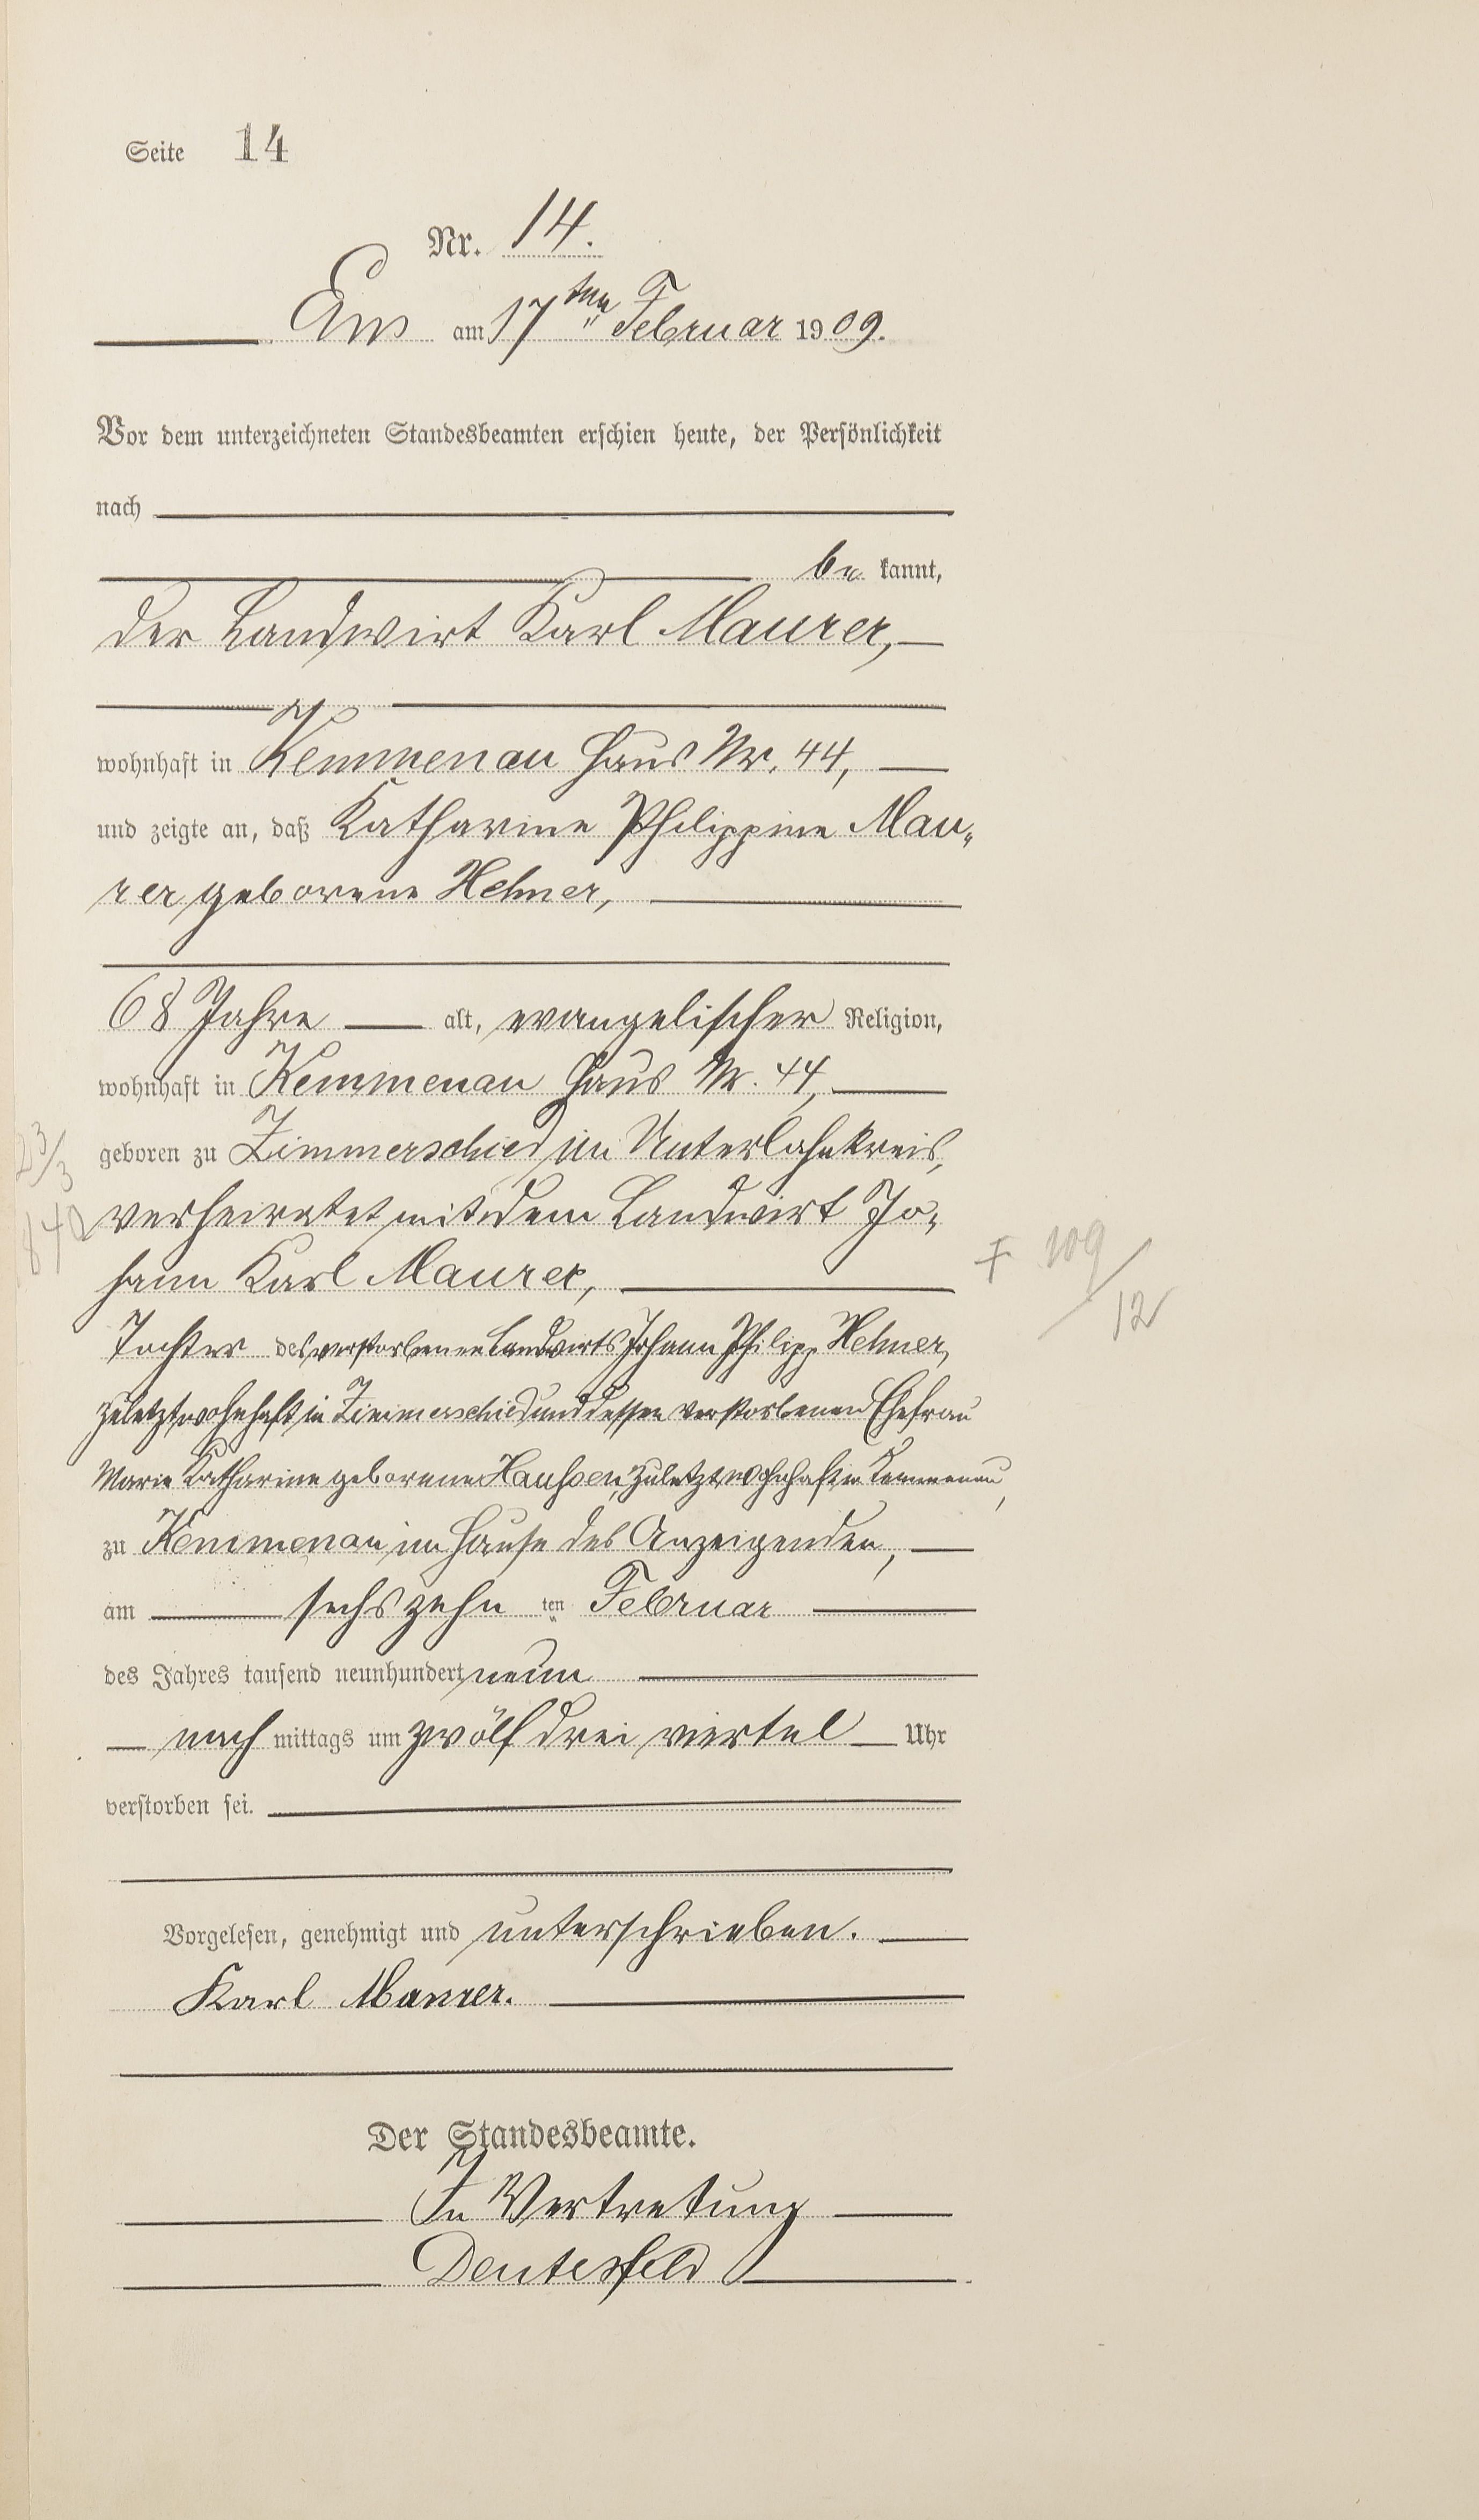 Seite 14
Nr. 14.
Ems am 17ten Februar 1909.
Vor dem unterzeichneten Standesbeamten erschien heute, der Persönlichkeit
nach
be kannt,
der Landwirt Karl Maurer,
wohnhaft in Kemmenau Haus Nr. 44,
und zeigte an, daß Katharine Philippine Mau-
rer geborene Hehner,
68 Jahre alt, evangelischer Religion,
wohnhaft in Kemmenau Haus Nr. 44,
geboren zu Zimmerschied im Unterlahnkreis,
verheiratet mit dem Landwirt Jo-
hann Karl Maurer,
Tochter des verstorbenen Landwirts Johann Philipp Hehner,
zuletzt wohnhaft in Zimmerschied und dessen verstorbenen Ehefrau
Marie Katharine geborene zuletzt wohnhaft in Kemmenau,
zu Kemmenau im Hause des Anzeigenden,
am sechszehn ten Februar
des Jahres tausend neunhundert neun
nach mittags um zwölf drei viertel Uhr
verstorben sei.
Vorgelesen, genehmigt und unterschrieben.
Karl Maurer.
Der Standesbeamte.
In Vertretung
Deutesfeld
23/3
840
109/12